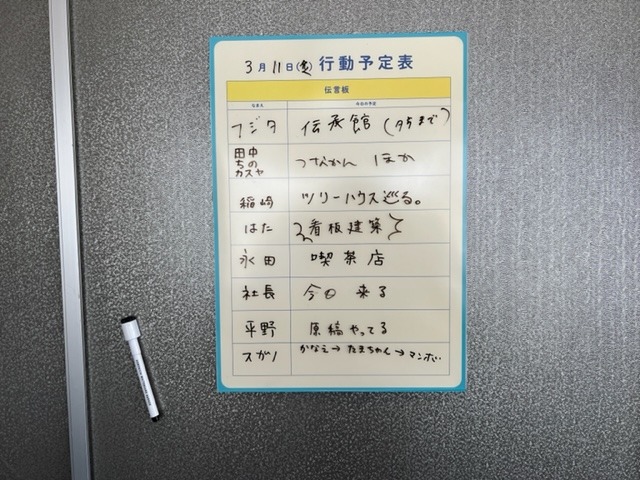 3月11日(金) 行動予定表
伝言板
フジタ 伝承館 (夕方まで)
田中
ちの
カスヤ つなかん ほか
稲崎 ツリーハウス巡る。
はた 看板建築
永田 喫茶店
社長 今日 来る
平野 原稿やってる
スガノ かなえ→たまちゃん→マンボ…